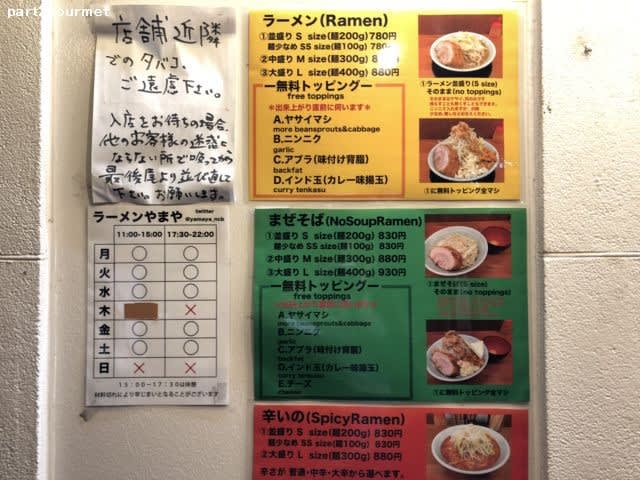 part2gourmet
店舗近隣
でのタバコ、
ご遠慮下さい。
入店をお待ちの場合、
他のお客様の迷惑に
ならない所で
最後尾より並び直して
下さい。お願いします。
ラーメンやまや
twitter
@yamaya_ncb
11:00-15:00 17:30-22:00
月 ○ ○
火 ○ ○
水 ○ ○
木 ×
金 ○ ○
土 ○ ○
日 × ×
15:00-17:30は休憩
材料切れにより早じまいとなることがございます
ラーメン(Ramen)
①並盛り S size(麺200g)780円
麺少なめ SS size(麺100g)780円
②中盛り M size(麺300g)
③大盛り L size(麺400g)880円
無料トッピング
free toppings
※出来上がり直前に伺います※
A.ヤサイマシ
more beansprouts&cabbage
B.ニンニク
garlic
C.アブラ(味付け背脂)
backfat
D.インド玉(カレー味揚玉)
curry tenkasu
①ラーメン並盛り(S size)
そのまま(no toppings)
①に無料トッピング全マシ
まぜそば(NoSoupRamen)
①並盛り S size(麺200g) 830円
麺少なめ SS size(麺100g) 830円
②中盛り M size(麺300g) 880円
③大盛り L size(麺400g) 930円
無料トッピング
free toppings
A.ヤサイマシ
more beansprouts&cabbage
B.ニンニク
garlic
C.アブラ(味付け背脂)
backfat
D.インド玉(カレー味揚玉)
curry tenkasu
E.チーズ
cheese
①まぜそば(S size)
そのまま(no toppings)
①に無料トッピング全マシ
辛いの(SpicyRamen)
①並盛り S size(麺200g) 830円
麺少なめ SS size(麺100g) 830円
②大盛り L size(麺300g) 880円
辛さが 普通・中辛・大辛から選べます。